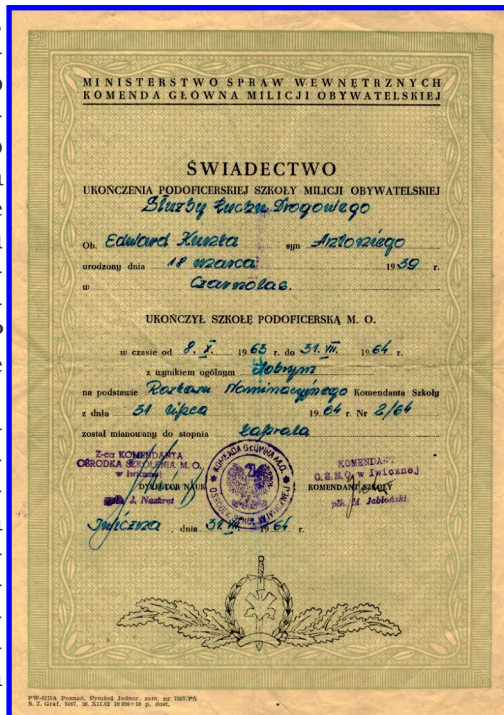 MINISTERSTWO SPRAW WEWNĘTRZNYCH
KOMENDA GŁÓWNA MILICJI OBYWATELSKIEJ
ŚWIADECTWO
UKOŃCZENIA PODOFICERSKIEJ SZKOŁY MILICJI OBYWATELSKIEJ
Służby Ruchu Drogowego
Ob. Edward Kuszta syn Antoniego
urodzony dnia 18 marca 1939 r.
w Czarnolas.
UKOŃCZYŁ SZKOŁĘ PODOFICERSKĄ M. O.
w czasie od 8. X. 1963 r. do 31. VII. 1964 r.
z wynikiem ogólnym dobrym
na podstawie Rozkazu Nominacyjnego Komendanta Szkoły
z dnia 31 lipca 1964 r. Nr 2/64
został mianowany do stopnia kaprala
Z-ca KOMENDANTA
OŚRODKA SZKOLENIA M. O.
w Iwicznej
DYREKTOR NAUK
J. Nazkręt
KOMENDA GŁÓWNA M.O.
KOMENDANT
O.S.M.O. w Iwicznej
KOMENDANT SZKOŁY
płk. M. Jabłoński
Iwiczna, dnia 31. VII. 1964 r.
PW-HDA Poznań. Symbol Jednor. zam. nr